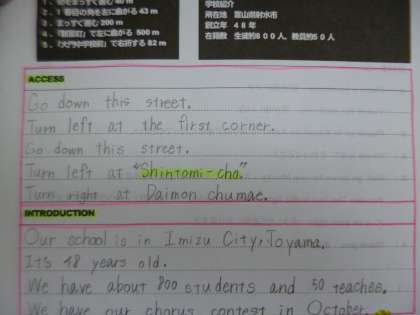 1. 前をまっすぐ進む 40 m
2. 1番目の角を左に曲がる 43 m
3. まっすぐ進む 200 m
4. 「新富町」で左に曲がる 500 m
5. 「大門中学校前」で右折する 82 m
学校紹介
所在地 富山県射水市
創立年 48年
在籍数 生徒約800人、教員約50人
ACCESS
Go down this street.
Turn left at the first corner.
Go down this street.
Turn left at "Shintomi-cho."
Turn right at Daimon chumae.
INTRODUCTION
Our school is in Imizu City, Toyama.
It's 48 years old.
We have about 800 students and 50 teaches.
We have our chorus contest in October.